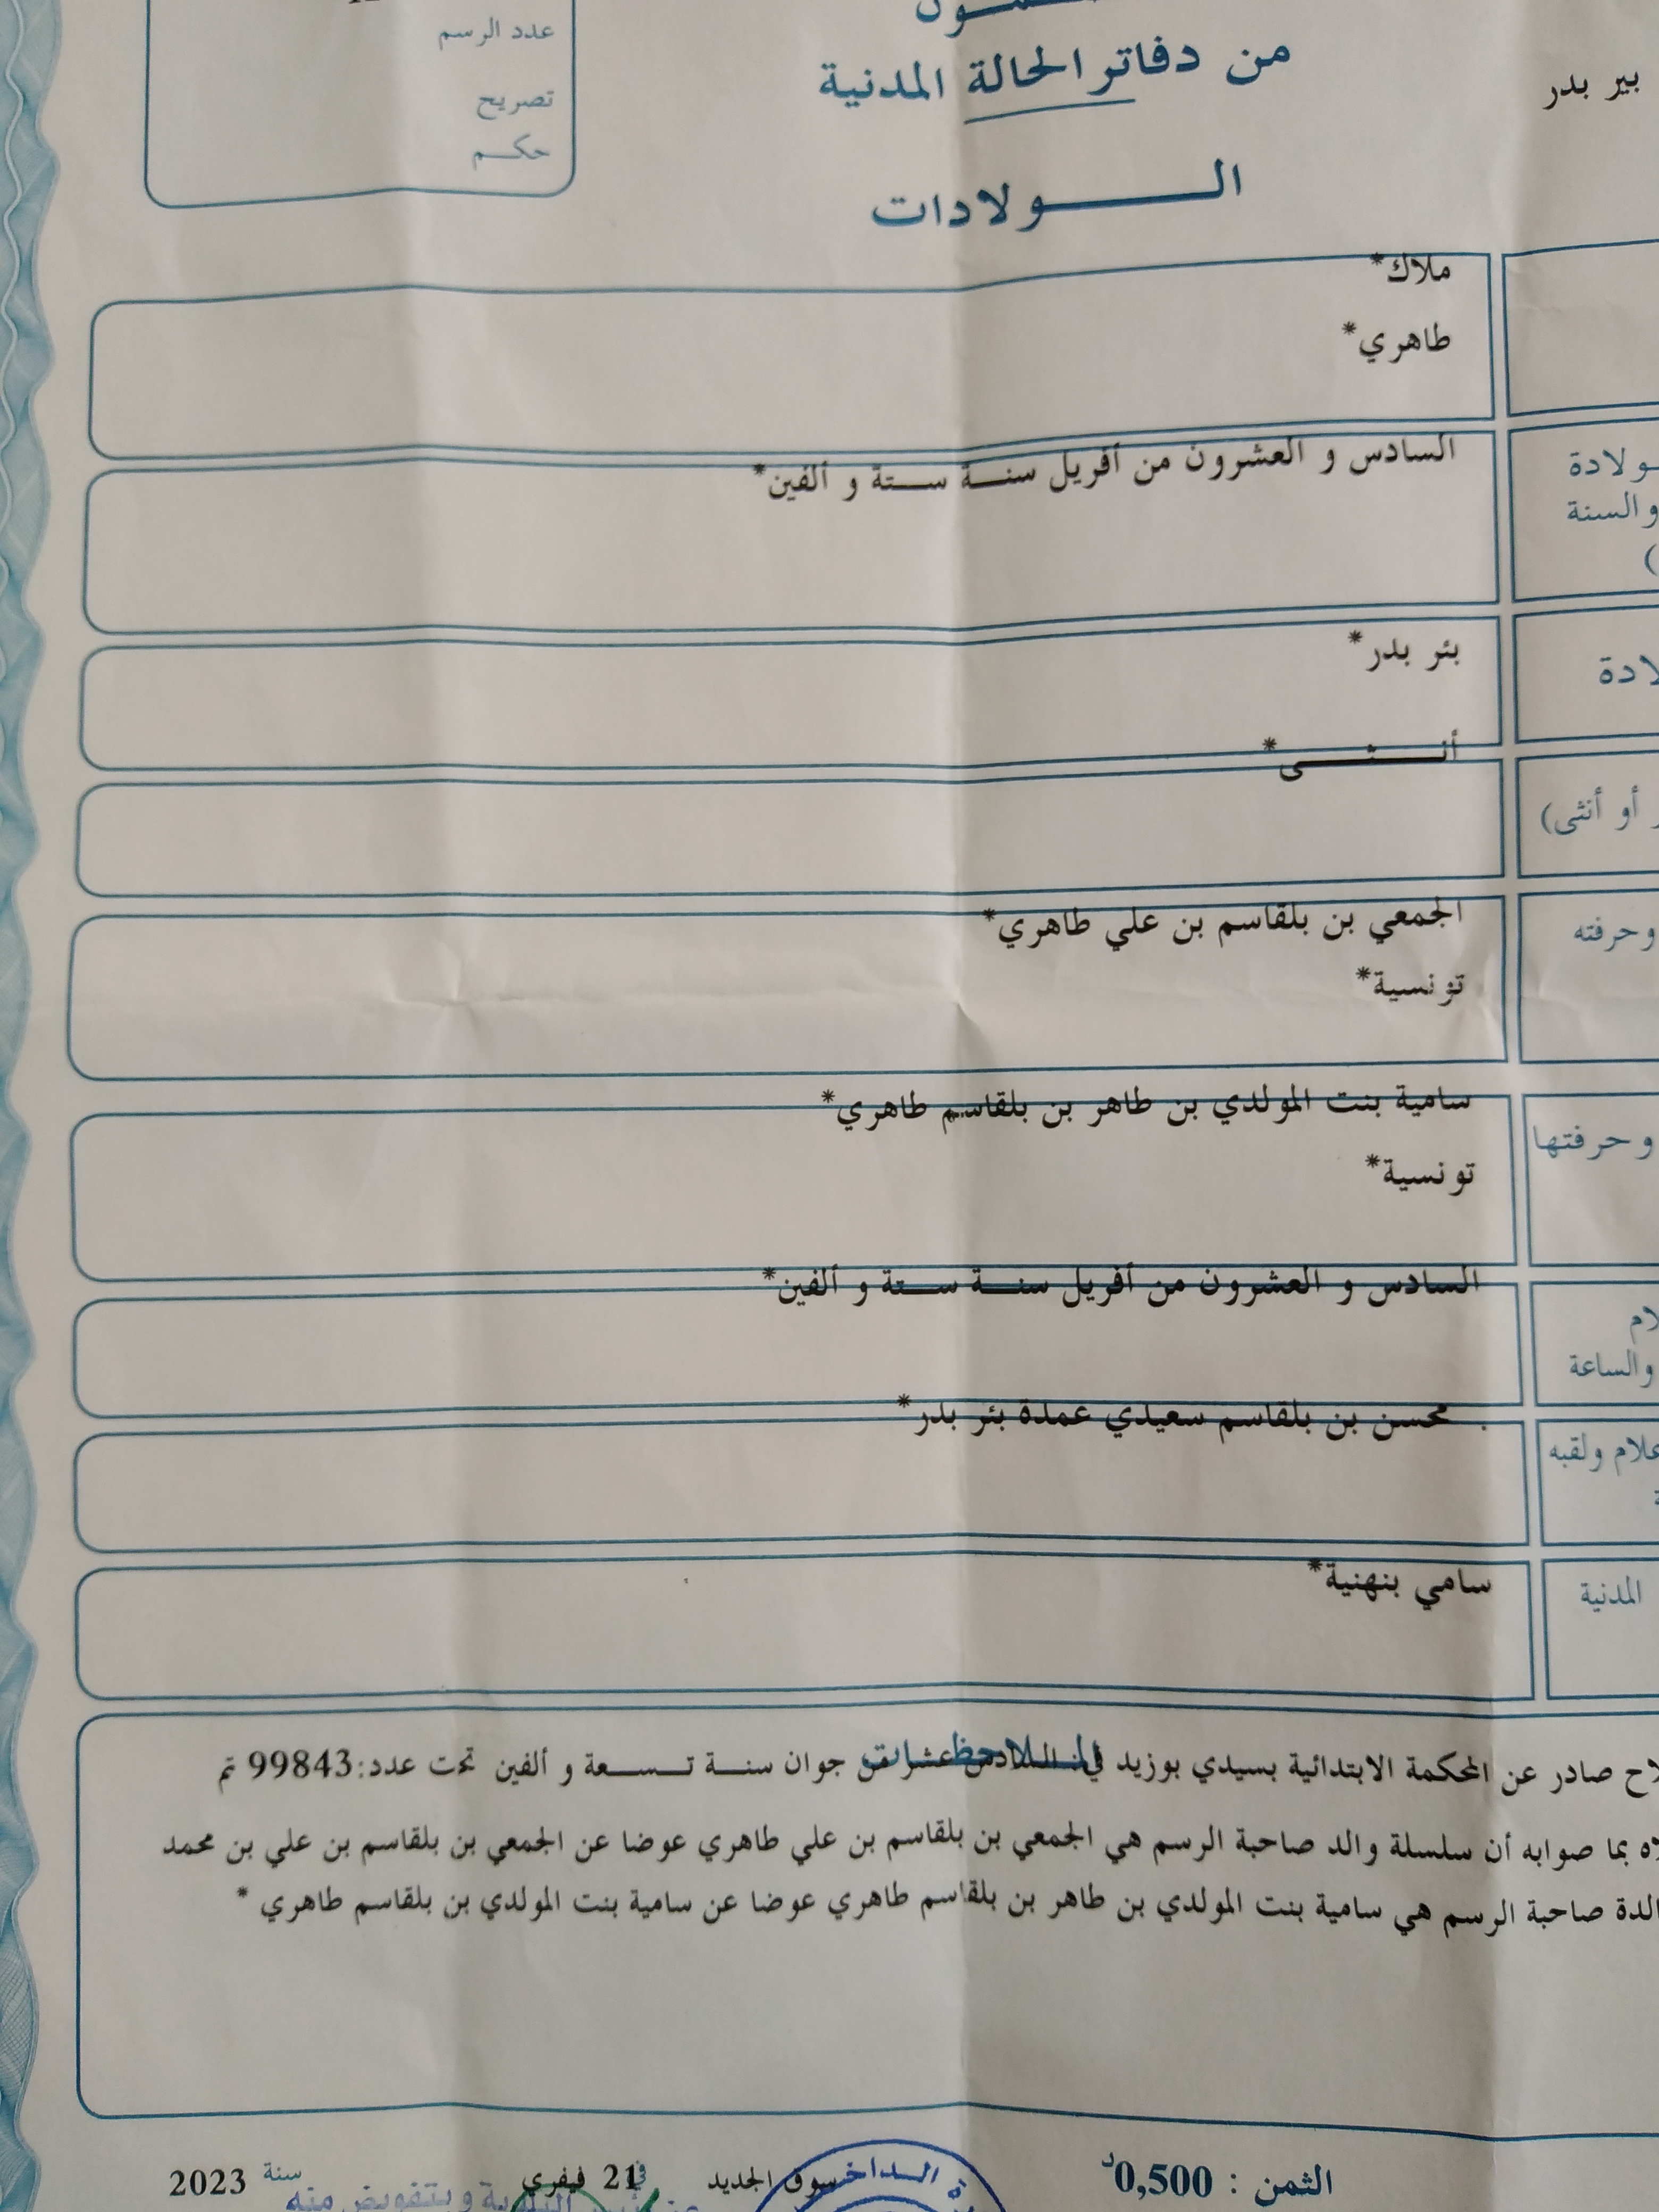 عدد الرسم
من دفاتر الحالة المدنية
بير بدر
تصريح
حكم
الولادات
ملاك*
طاهري*
السادس و العشرون من أفريل سنة ستة و ألفين*
والسنة
(
بئر بدر*
أنثى*
أو أنثى)
الجمعي بن بلقاسم بن علي طاهري*
وحرفته
تونسية*
سامية بنت المولدي بن طاهر بن بلقاسم طاهري*
وحرفتها
تونسية*
السادس و العشرون من أفريل سنة ستة و ألفين*
والساعة
محسن بن بلقاسم سعيدي عمدة بئر بدر*
ولقبه
سامي بنهنية*
المدنية
الملاحظات
صادر عن المحكمة الابتدائية بسيدي بوزيد في السادس عشر من جوان سنة تسعة و ألفين تحت عدد:99843 تم
بما صوابه أن سلسلة والد صاحبة الرسم هي الجمعي بن بلقاسم بن علي طاهري عوضا عن الجمعي بن بلقاسم بن علي بن محمد
صاحبة الرسم هي سامية بنت المولدي بن طاهر بن بلقاسم طاهري عوضا عن سامية بنت المولدي بن بلقاسم طاهري *
الثمن : 0,500د
سوق الجديد في 21 فيفري سنة 2023
وبتفويض منه